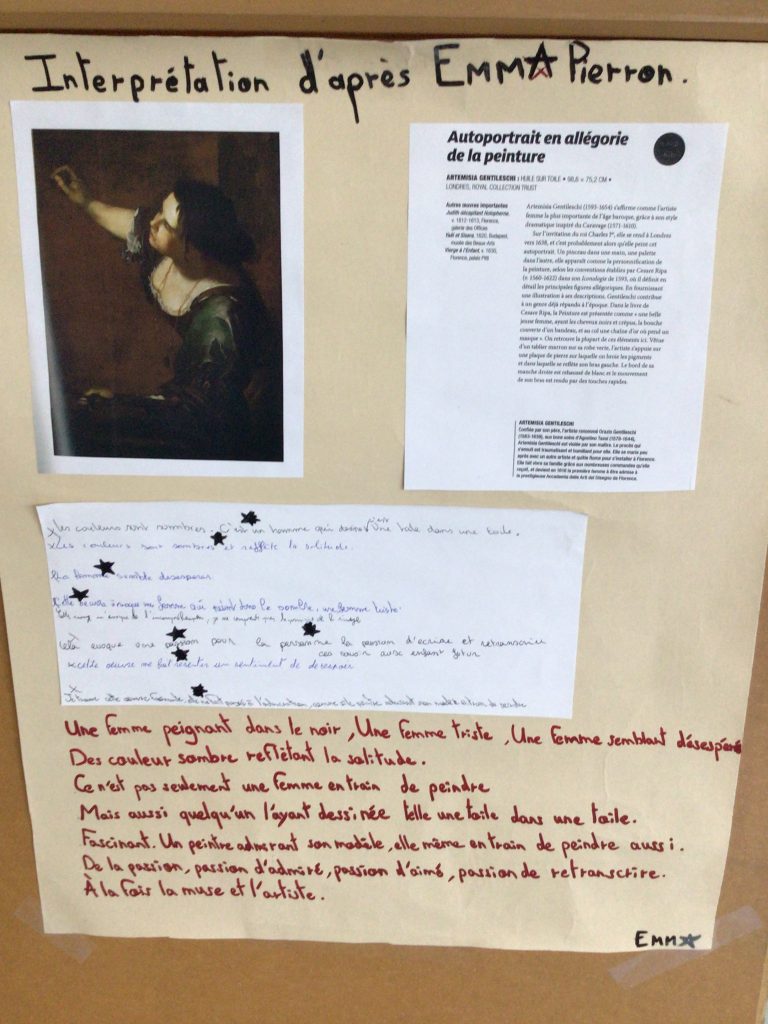 Interprétation d'après EMMA Pierron.
Autoportrait en allégorie
de la peinture
ARTEMISIA GENTILESCHI : HUILE SUR TOILE • 98,6 × 75,2 CM •
LONDRES, ROYAL COLLECTION TRUST
Autres œuvres importantes
Judith décapitant Holopherne,
v. 1612-1613, Florence,
galerie des Offices
1620, Budapest,
musée des Beaux-Arts
Vierge à l'Enfant, v. 1630,
Florence, palais Pitti
Artemisia Gentileschi (1593-1654) s'affirme comme l'artiste
femme la plus importante de l'âge baroque, grâce à son style
dramatique inspiré du Caravage (1571-1610).
Sur l'invitation du roi Charles Iᵉʳ, elle se rend à Londres
vers 1638, et c'est probablement alors qu'elle peint cet
autoportrait. Un pinceau dans une main, une palette
dans l'autre, elle apparaît comme la personnification de
la peinture, selon les conventions établies par Cesare Ripa
(v. 1560-1622) dans son Iconologie de 1593, où il définit en
détail les principales figures allégoriques. En fournissant
une illustration à ses descriptions, Gentileschi contribue
à un genre déjà répandu à l'époque. Dans le livre de
Cesare Ripa, la Peinture est présentée comme « une belle
jeune femme, ayant les cheveux noirs et crépus, la bouche
couverte d'un bandeau, et au col une chaîne d'or où pend un
masque ». On retrouve la plupart de ces éléments ici. Vêtue
d'un tablier marron sur sa robe verte, l'artiste s'appuie sur
une plaque de pierre sur laquelle on broie les pigments
et dans laquelle se reflète son bras gauche. Le bord de sa
manche droite est rehaussé de blanc et le mouvement
de son bras est rendu par des touches rapides.
ARTEMISIA GENTILESCHI
Confiée par son père, l'artiste renommé Orazio Gentileschi
(1563-1639), aux bons soins d'Agostino Tassi (1578-1644),
Artemisia Gentileschi est violée par son maître. Le procès qui
s'ensuit est traumatisant et humiliant pour elle. Elle se marie peu
après avec un autre artiste et quitte Rome pour s'installer à Florence.
Elle fait vivre sa famille grâce aux nombreuses commandes qu'elle
reçoit, et devient en 1616 la première femme à être admise à
la prestigieuse Accademia delle Arti del Disegno de Florence.
Les couleurs sont sombres. C'est un homme qui dessine c'est une toile dans une toile.
Les couleurs sont sombres et reflète la solitude.
La femme semble désespérer.
Cette œuvre évoque une femme qui peint dans le sombre, une femme triste.
Cela évoque une passion pour la personne la passion d'écrire et retranscrire
cette œuvre me fait ressentir un sentiment de desespoir
Une femme peignant dans le noir, Une femme triste, Une femme semblant désespérée
Des couleur sombre reflètant la solitude.
Ce n'est pas seulement une femme entrain de peindre
Mais aussi quelqu'un l'ayant dessinée telle une toile dans une toile.
Fascinant. Un peintre admirant son modèle, elle même en train de peindre aussi.
De la passion, passion d'admiré, passion d'aimé, passion de retranscrire.
À la fois la muse et l'artiste.
EMMA